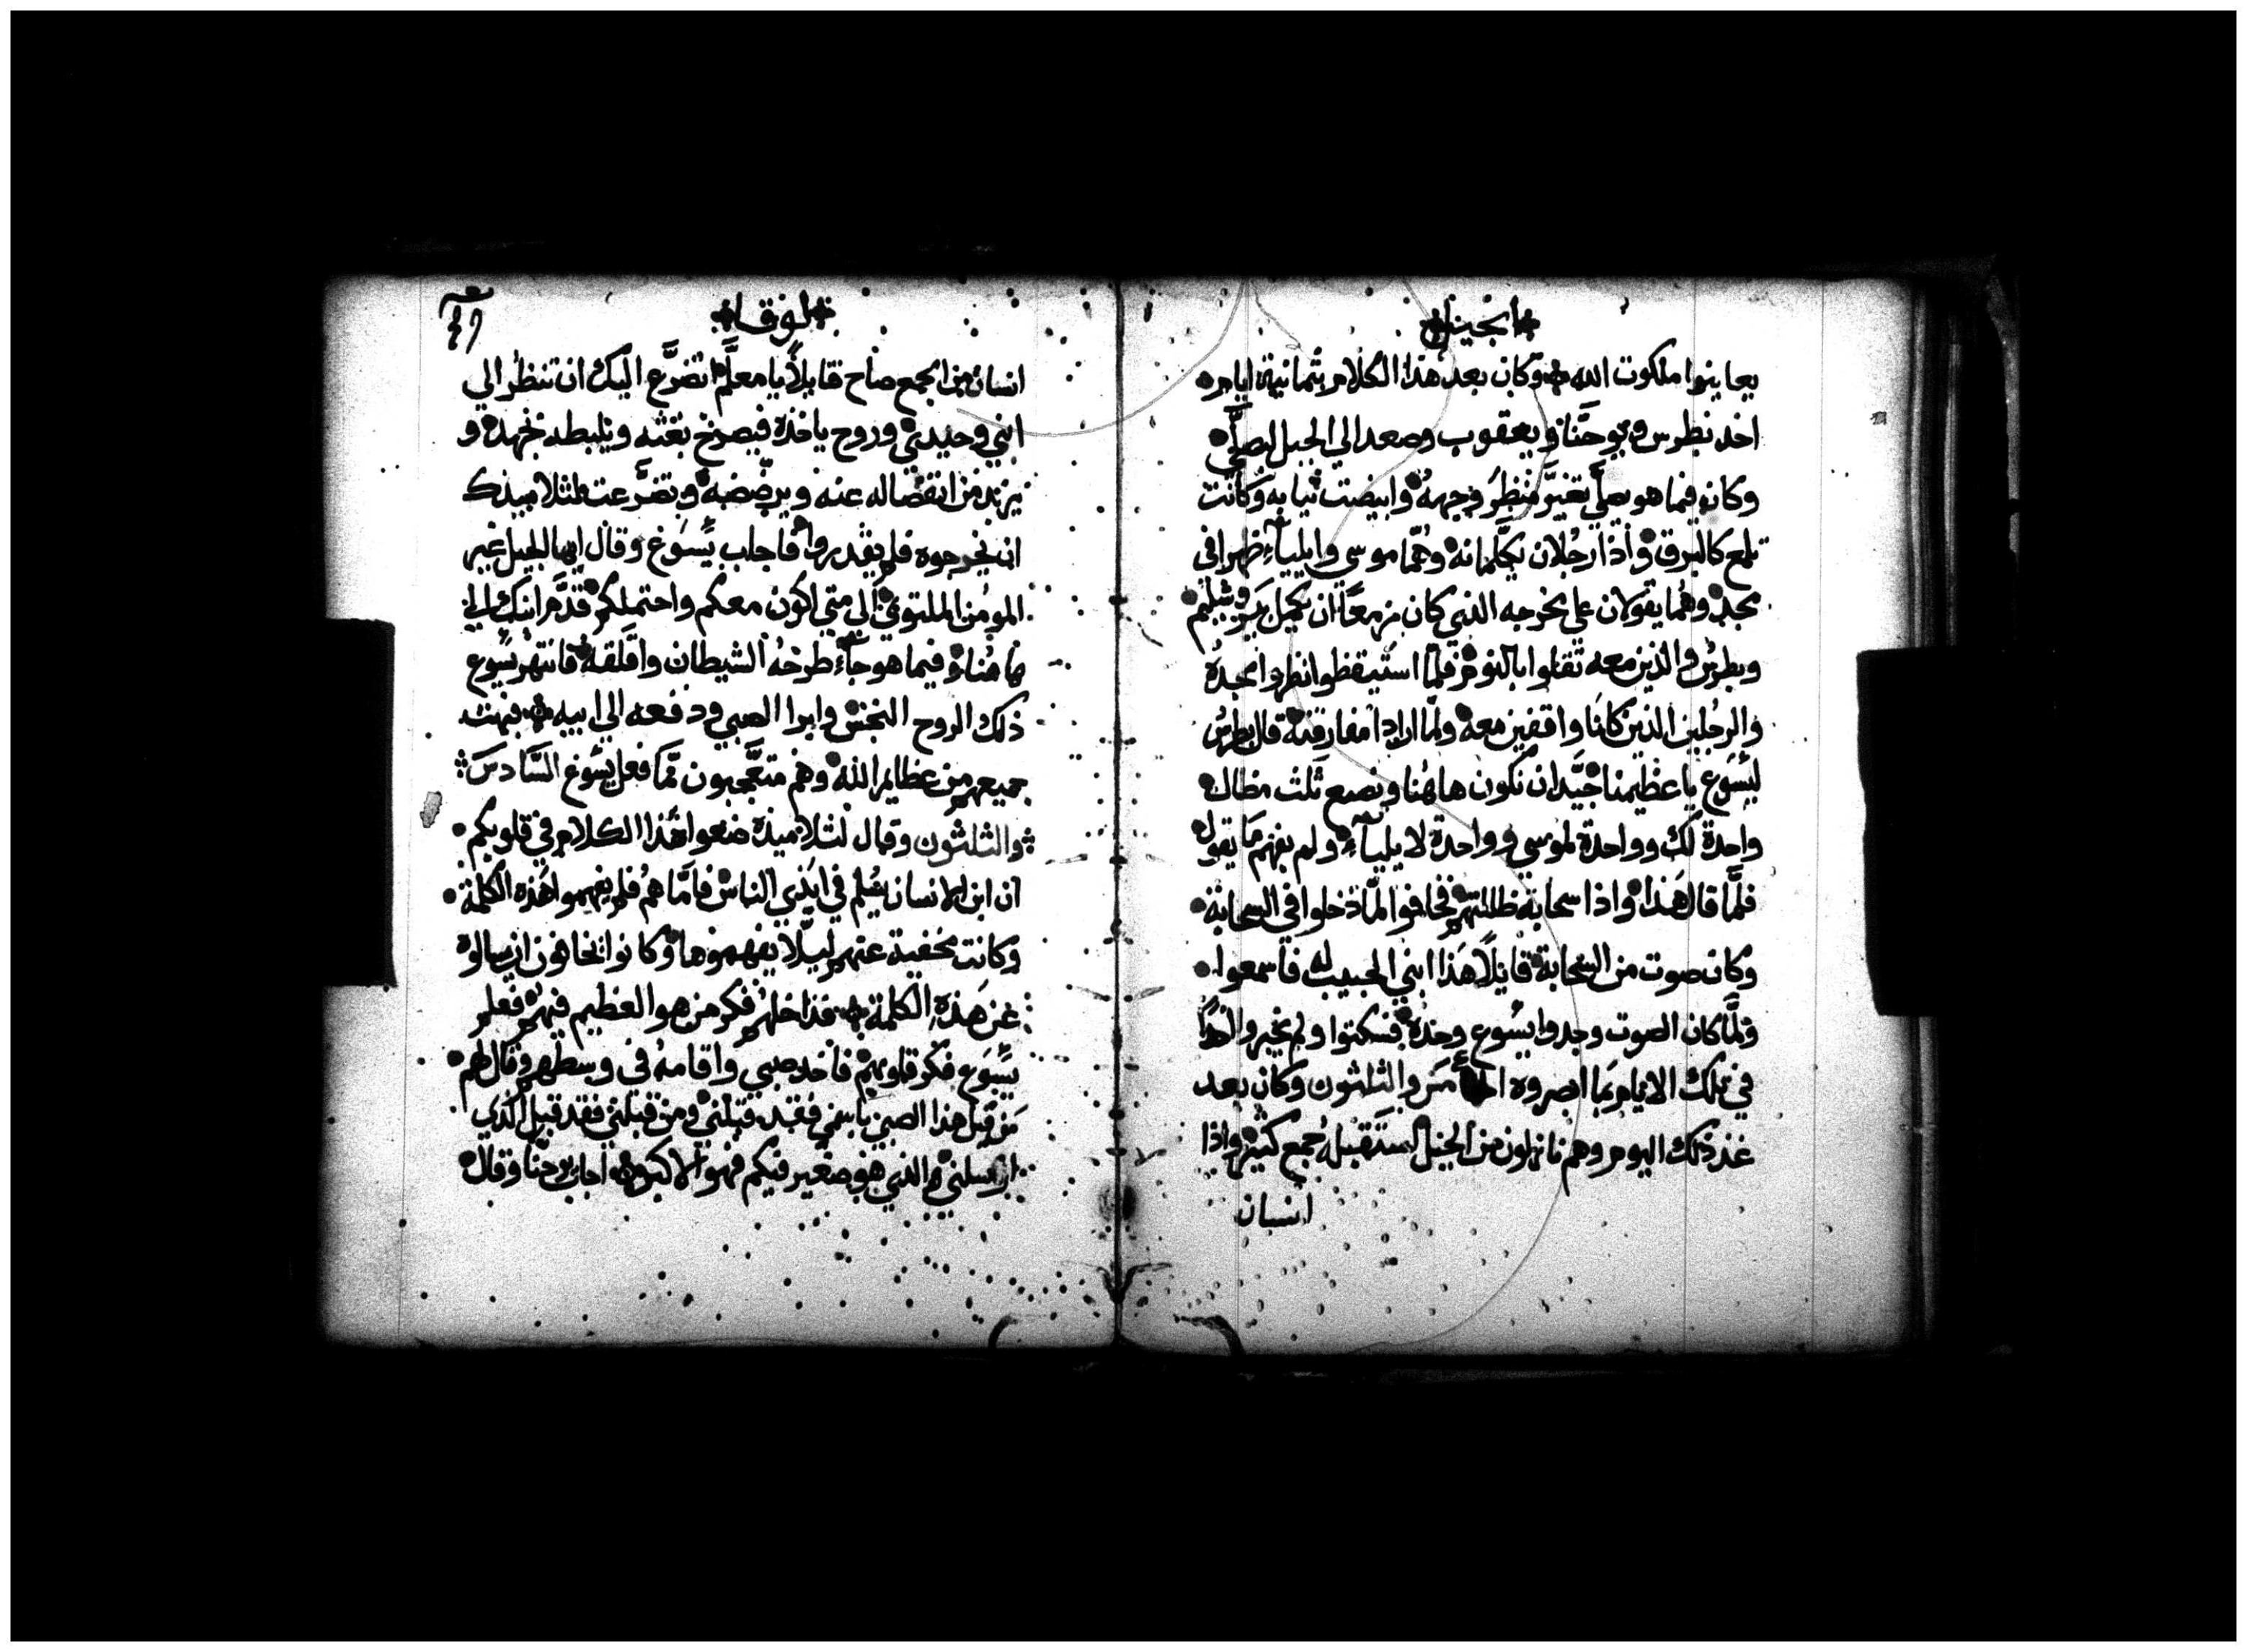 انجيل
يعاينوا ملكوت الله وكان بعد هذا الكلام بثمانية ايام
اخد بطرس ويوحنا ويعقوب وصعد الي الجبل ليصلي
وكان فيما هو يصلي تغير منظر وجهه وابيضت ثيابه وكانت
تلمع كالبرق واذا رجلان يكلمانه وهما موسي وايلياء ظهرا في
مجد وهما يقولان علي مخرجه الذي كان مزمعا ان يكمل بيروشليم
وبطرس والذين معه ثقلوا بالنوم فلما استيقظوا نظروا مجده
والرجلين الذين كانا واقفين معه ولما ارادا مفارقته قال بطرس
ليسوع يا عظيمنا جيد ان نكون هاهنا ونصنع ثلث مظال
واحدة لك وواحدة لموسي وواحدة لايلياء ولم يفهم ما يقول
فلما قال هذا واذا سحابة ظللتهم فخافوا لما دخلوا في السحابة
وكان صوت من السحابة قايلا هذا ابني الحبيب له فاسمعوا
ولما كان الصوت وجدوا يسوع وحده فسكتوا ولم يخبروا احدا
في تلك الايام بما ابصروه والثلثون وكان بعد
غد ذلك اليوم وهم نازلون من الجبل استقبله جمع كثير واذا
انسان
لوقا
انسان من الجمع صاح قايلا يا معلم اتضرع اليك ان تنظر الي
ابني وحيدي وروح ياخذه فيصرخ بغتة ويلبطه بجهد و
يزبد من انفصاله عنه ويرضضه وتضرعت لتلاميدك
ان يخرجوه فلم يقدروا فاجاب يسوع وقال ايها الجيل غير
المومن الملتوي الي متي اكون معكم واحتملكم قدم ابنك الي
هاهنا وفيما هو جاء طرحه الشيطان واقلقه فانتهر يسوع
ذلك الروح النجس وابرا الصبي ودفعه الي ابيه فبهت
جميعهم من عظايم الله وهم متعجبون مما فعل يسوع السادس
والثلثون وقال لتلاميذه ضعوا هذا الكلام في قلوبكم
ان ابن الانسان يسلم في ايذي الناس فاما هم فلم يفهموا هذه الكلمة
وكانت مخفية عنهم ليلا يفهموها وكانوا يخافون ان يسالوه
عن هذه الكلمة فداخلهم فكر من هو العظيم فيهم فعلم
يسوع فكر قلوبهم فاخد صبي واقامه في وسطهم وقال لهم
من قبل هذا الصبي باسمي فقد قبلني ومن قبلني فقد قبل الذي
ارسلني والذي هو صغير فيكم فهو الاكبر اجاب يوحنا وقال